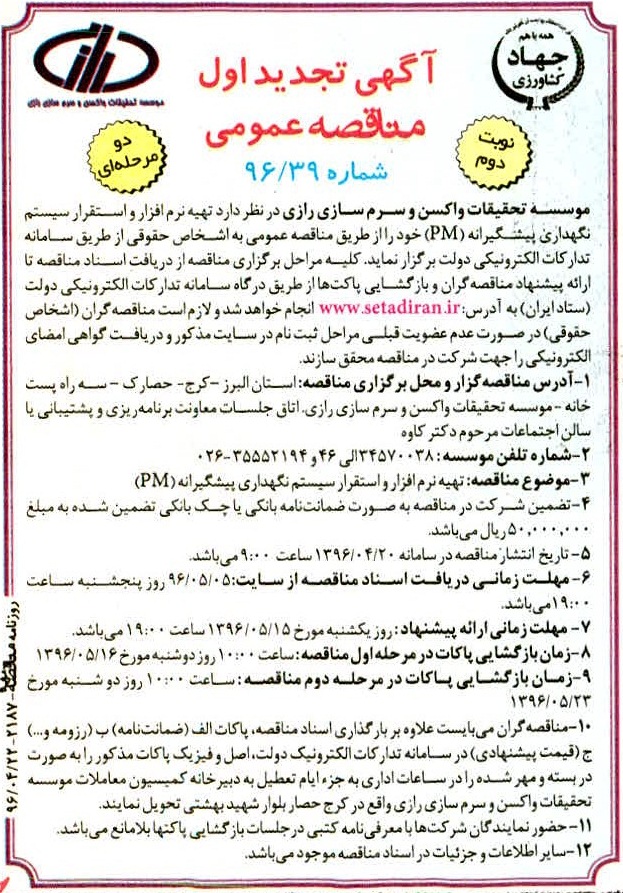 همه با هم
جهاد
کشاورزی
موسسه تحقیقات واکسن و سرم سازی رازی
آگهی تجدید اول
مناقصه عمومی
شماره ۹۶/۳۹
نوبت
دوم
دو
مرحله‌ای
موسسه تحقیقات واکسن و سرم سازی رازی در نظر دارد تهیه نرم افزار و استقرار سیستم
نگهداری پیشگیرانه (PM) خود را از طریق مناقصه عمومی به اشخاص حقوقی از طریق سامانه
تدارکات الکترونیکی دولت برگزار نماید. کلیه مراحل برگزاری مناقصه از دریافت اسناد مناقصه تا
ارائه پیشنهاد مناقصه‌گران و بازگشایی پاکت‌ها از طریق درگاه سامانه تدارکات الکترونیکی دولت
(ستاد ایران) به آدرس: www.setadiran.ir انجام خواهد شد و لازم است مناقصه گران (اشخاص
حقوقی) در صورت عدم عضویت قبلی مراحل ثبت نام در سایت مذکور و دریافت گواهی امضای
الکترونیکی را جهت شرکت در مناقصه محقق سازند.
۱-آدرس مناقصه‌گزار و محل برگزاری مناقصه: استان البرز -کرج- حصارک - سه راه پست
خانه -موسسه تحقیقات واکسن و سرم سازی رازی. اتاق جلسات معاونت برنامه‌ریزی و پشتیبانی یا
سالن اجتماعات مرحوم دکتر کاوه
۲-شماره تلفن موسسه: ۳۴۵۷۰۰۳۸الی ۴۶ و ۳۵۵۵۲۱۹۴-۰۲۶
۳-موضوع مناقصه: تهیه نرم افزار و استقرار سیستم نگهداری پیشگیرانه (PM)
۴-تضمین شرکت در مناقصه به صورت ضمانت‌نامه بانکی یا چک بانکی تضمین شده به مبلغ
۵۰,۰۰۰,۰۰۰ ریال می‌باشد.
۵- تاریخ انتشار مناقصه در سامانه ۱۳۹۶/۰۴/۲۰ ساعت ۹:۰۰ می‌باشد.
۶- مهلت زمانی دریافت اسناد مناقصه از سایت: ۹۶/۰۵/۰۵ روز پنجشنبه ساعت
۱۹:۰۰می‌باشد.
۷- مهلت زمانی ارائه پیشنهاد: روز یکشنبه مورخ ۱۳۹۶/۰۵/۱۵ ساعت ۱۹:۰۰ می‌باشد.
۸-زمان بازگشایی پاکات در مرحله اول مناقصه: ساعت ۱۰:۰۰ روز دوشنبه مورخ ۱۳۹۶/۰۵/۱۶
۹-زمان بازگشایی پاکات در مرحله دوم مناقصه: ساعت ۱۰:۰۰ روز دو شنبه مورخ
۱۳۹۶/۰۵/۲۳
۱۰-مناقصه‌گران می‌بایست علاوه بر بارگذاری اسناد مناقصه، پاکات الف (ضمانت‌نامه) ب (رزومه و...)
ج (قیمت پیشنهادی) در سامانه تدارکات الکترونیک دولت، اصل و فیزیک پاکات مذکور را به صورت
در بسته و مهر شده را در ساعات اداری به جزء ایام تعطیل به دبیرخانه کمیسیون معاملات موسسه
تحقیقات واکسن و سرم سازی رازی واقع در کرج حصار بلوار شهید بهشتی تحویل نمایند.
۱۱-حضور نمایندگان شرکت‌ها با معرفی‌نامه کتبی در جلسات بازگشایی پاکتها بلامانع می‌باشد.
۱۲-سایر اطلاعات و جزئیات در اسناد مناقصه موجود می‌باشد.
روزنامه مناقصه ۲۱۸۷-۹۶/۰۴/۲۲